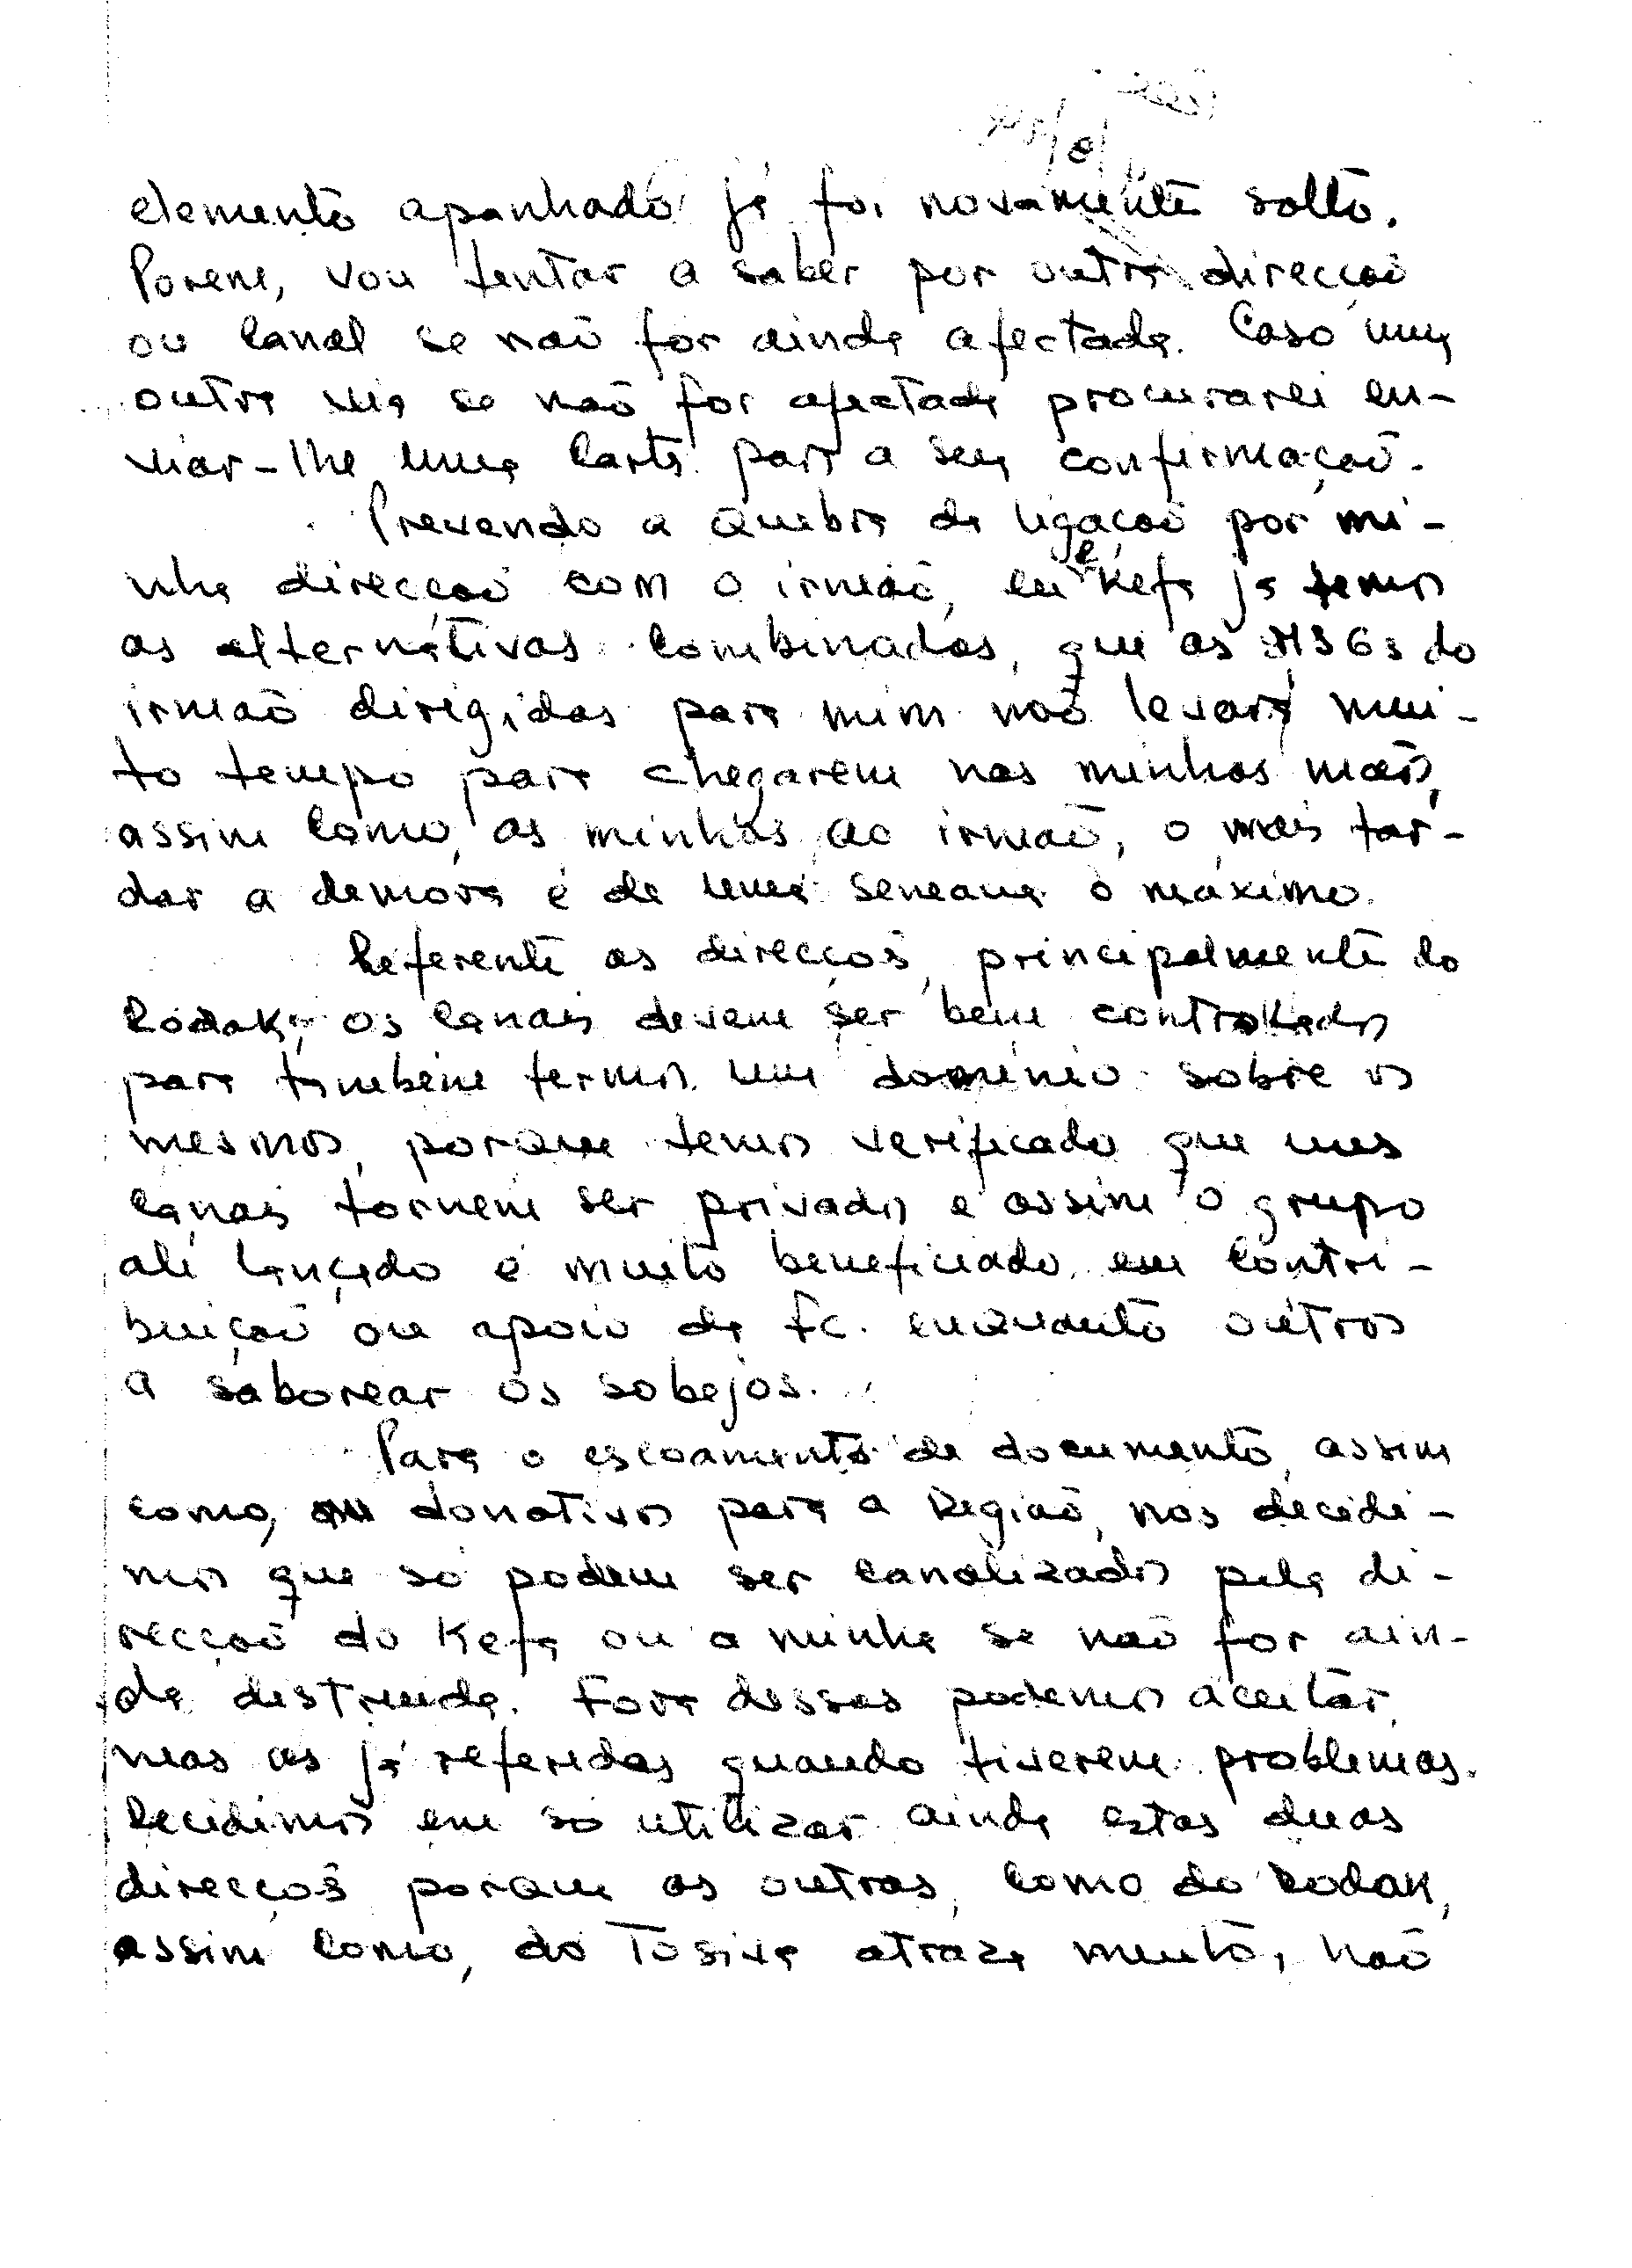 elemento apanhado já foi novamente solto.
Porem, vou tentar a saber por outra direcção
ou Canal se não for ainda afectada. Caso uma
outra via se não for afectada procurarei en-
viar-lhe uma Carta para a sua confirmação.
Prevendo a quebra da ligação por mi-
nha direcção com o irmão, eu e Kefa já temos
as alternativas combinadas, que as MSGs do
irmão dirigidas para mim não levará mui-
to tempo para chegarem nas minhas mãos,
assim como, as minhas ao irmão, o mais tar-
dar a demora é de uma semana o máximo.
Referente as direcçoẽs, principalmente do
Rodak, os Canais devem ser bem controlados
para tambem termos um dominio sobre os
mesmos, porque temos verificado que uns
Canais tornem ser privados e assim o grupo
ali lançado é muito beneficiado em contri-
buição ou apoio da Fc. enquanto outros
a saborear os sobejos.
Para o escoamento de documento, assim
como, donativos para a Região, nos decidi-
mos que só podem ser canalizados pela di-
recção do Kefa ou a minha se não for ain-
da distruida. Fora dessas podemos aceitar,
mas as já referidas quando tiverem problemas.
Decidimos em só utilizar ainda estas duas
direcçoẽs porque as outras, como do Rodak,
assim como, do Tosiva atraza muito, não